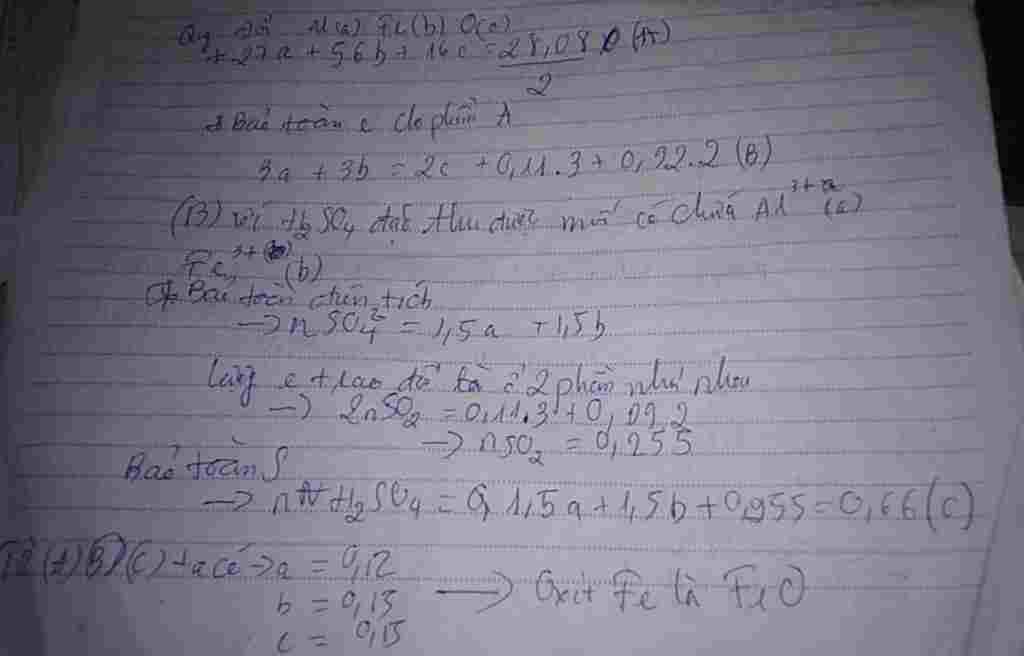 Quy đổi Al(a) Fe(b) O(c)
+ 27a + 56b + 16c = 28,08 (A)
2
Bảo toàn e cho phần A
3a + 3b = 2c + 0,11.3 + 0,22.2 (B)
(B) với H2SO4 đặc thu được muối có chứa Al3+ (a)
Fe3+ (b)
Bảo toàn điện tích
→ nSO4 2- = 1,5a + 1,5b
Lượng e trao đổi ở 2 phần như nhau
→ 2nSO2 = 0,11.3 + 0,09.2
→ nSO2 = 0,255
Bảo toàn S
→ nH2SO4 = 1,5a + 1,5b + 0,255 = 0,66 (C)
Từ (A) (B) (C) ta có → a = 0,12
b = 0,15 → Oxit Fe là FeO
c = 0,15